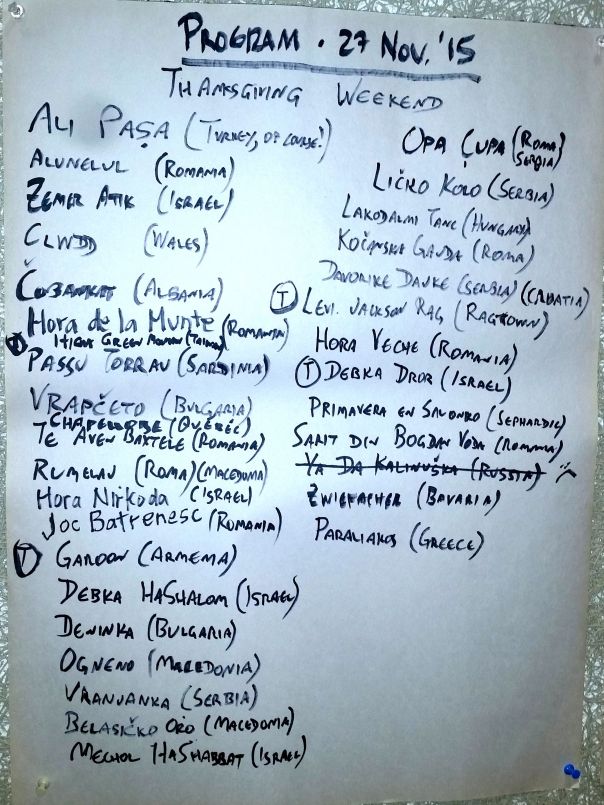 PROGRAM . 27 NOV. '15
THANKSGIVING WEEKEND
ALI PAŞA (TURKEY, OF COURSE!)
ALUNELUL (ROMANIA)
ZEMER ATIK (ISRAEL)
CLWDD (WALES)
ČOBANKAT (ALBANIA)
Hora de la Munte (ROMANIA)
(T) HIGH GREEN (TAIWAN)
PASSU TORRAU (SARDINIA)
VRAPČETO (BULGARIA)
CHAPELLOISE (QUÉBEC)
TE AVEN BAXTELE (ROMANIA)
RUMELAJ (ROMA) (MACEDONIA)
Hora Nirkoda (ISRAEL)
Joc Batrenesc (ROMANIA)
(T) GAROON (ARMENIA)
DEBKA HASHALOM (ISRAEL)
DENINKA (BULGARIA)
OGNENO (MACEDONIA)
VRANJANKA (SERBIA)
BELASIČKO ORO (MACEDONIA)
MECHOL HASHABBAT (ISRAEL)
OPA ÇUPA (ROMA/
SERBIA)
LIČKO KOLO (SERBIA)
LAKODALMI TANC (HUNGARY)
KOČANSKA GAJDA (ROMA)
DAVORIKE DAJKE (SERBIA) (CROATIA)
(T) LEVI JACKSON RAG (RAGTOWN)
HORA VECHE (ROMANIA)
(T) DEBKA DROR (ISRAEL)
PRIMAVERA EN SALONIKO (SEPHARDIC)
SARIT DIN BOGDAN VODA (ROMANIA)
YA DA KALINUŠKA (RUSSIA)
ZWIEFACHER (BAVARIA)
PARALIAKOS (GREECE)